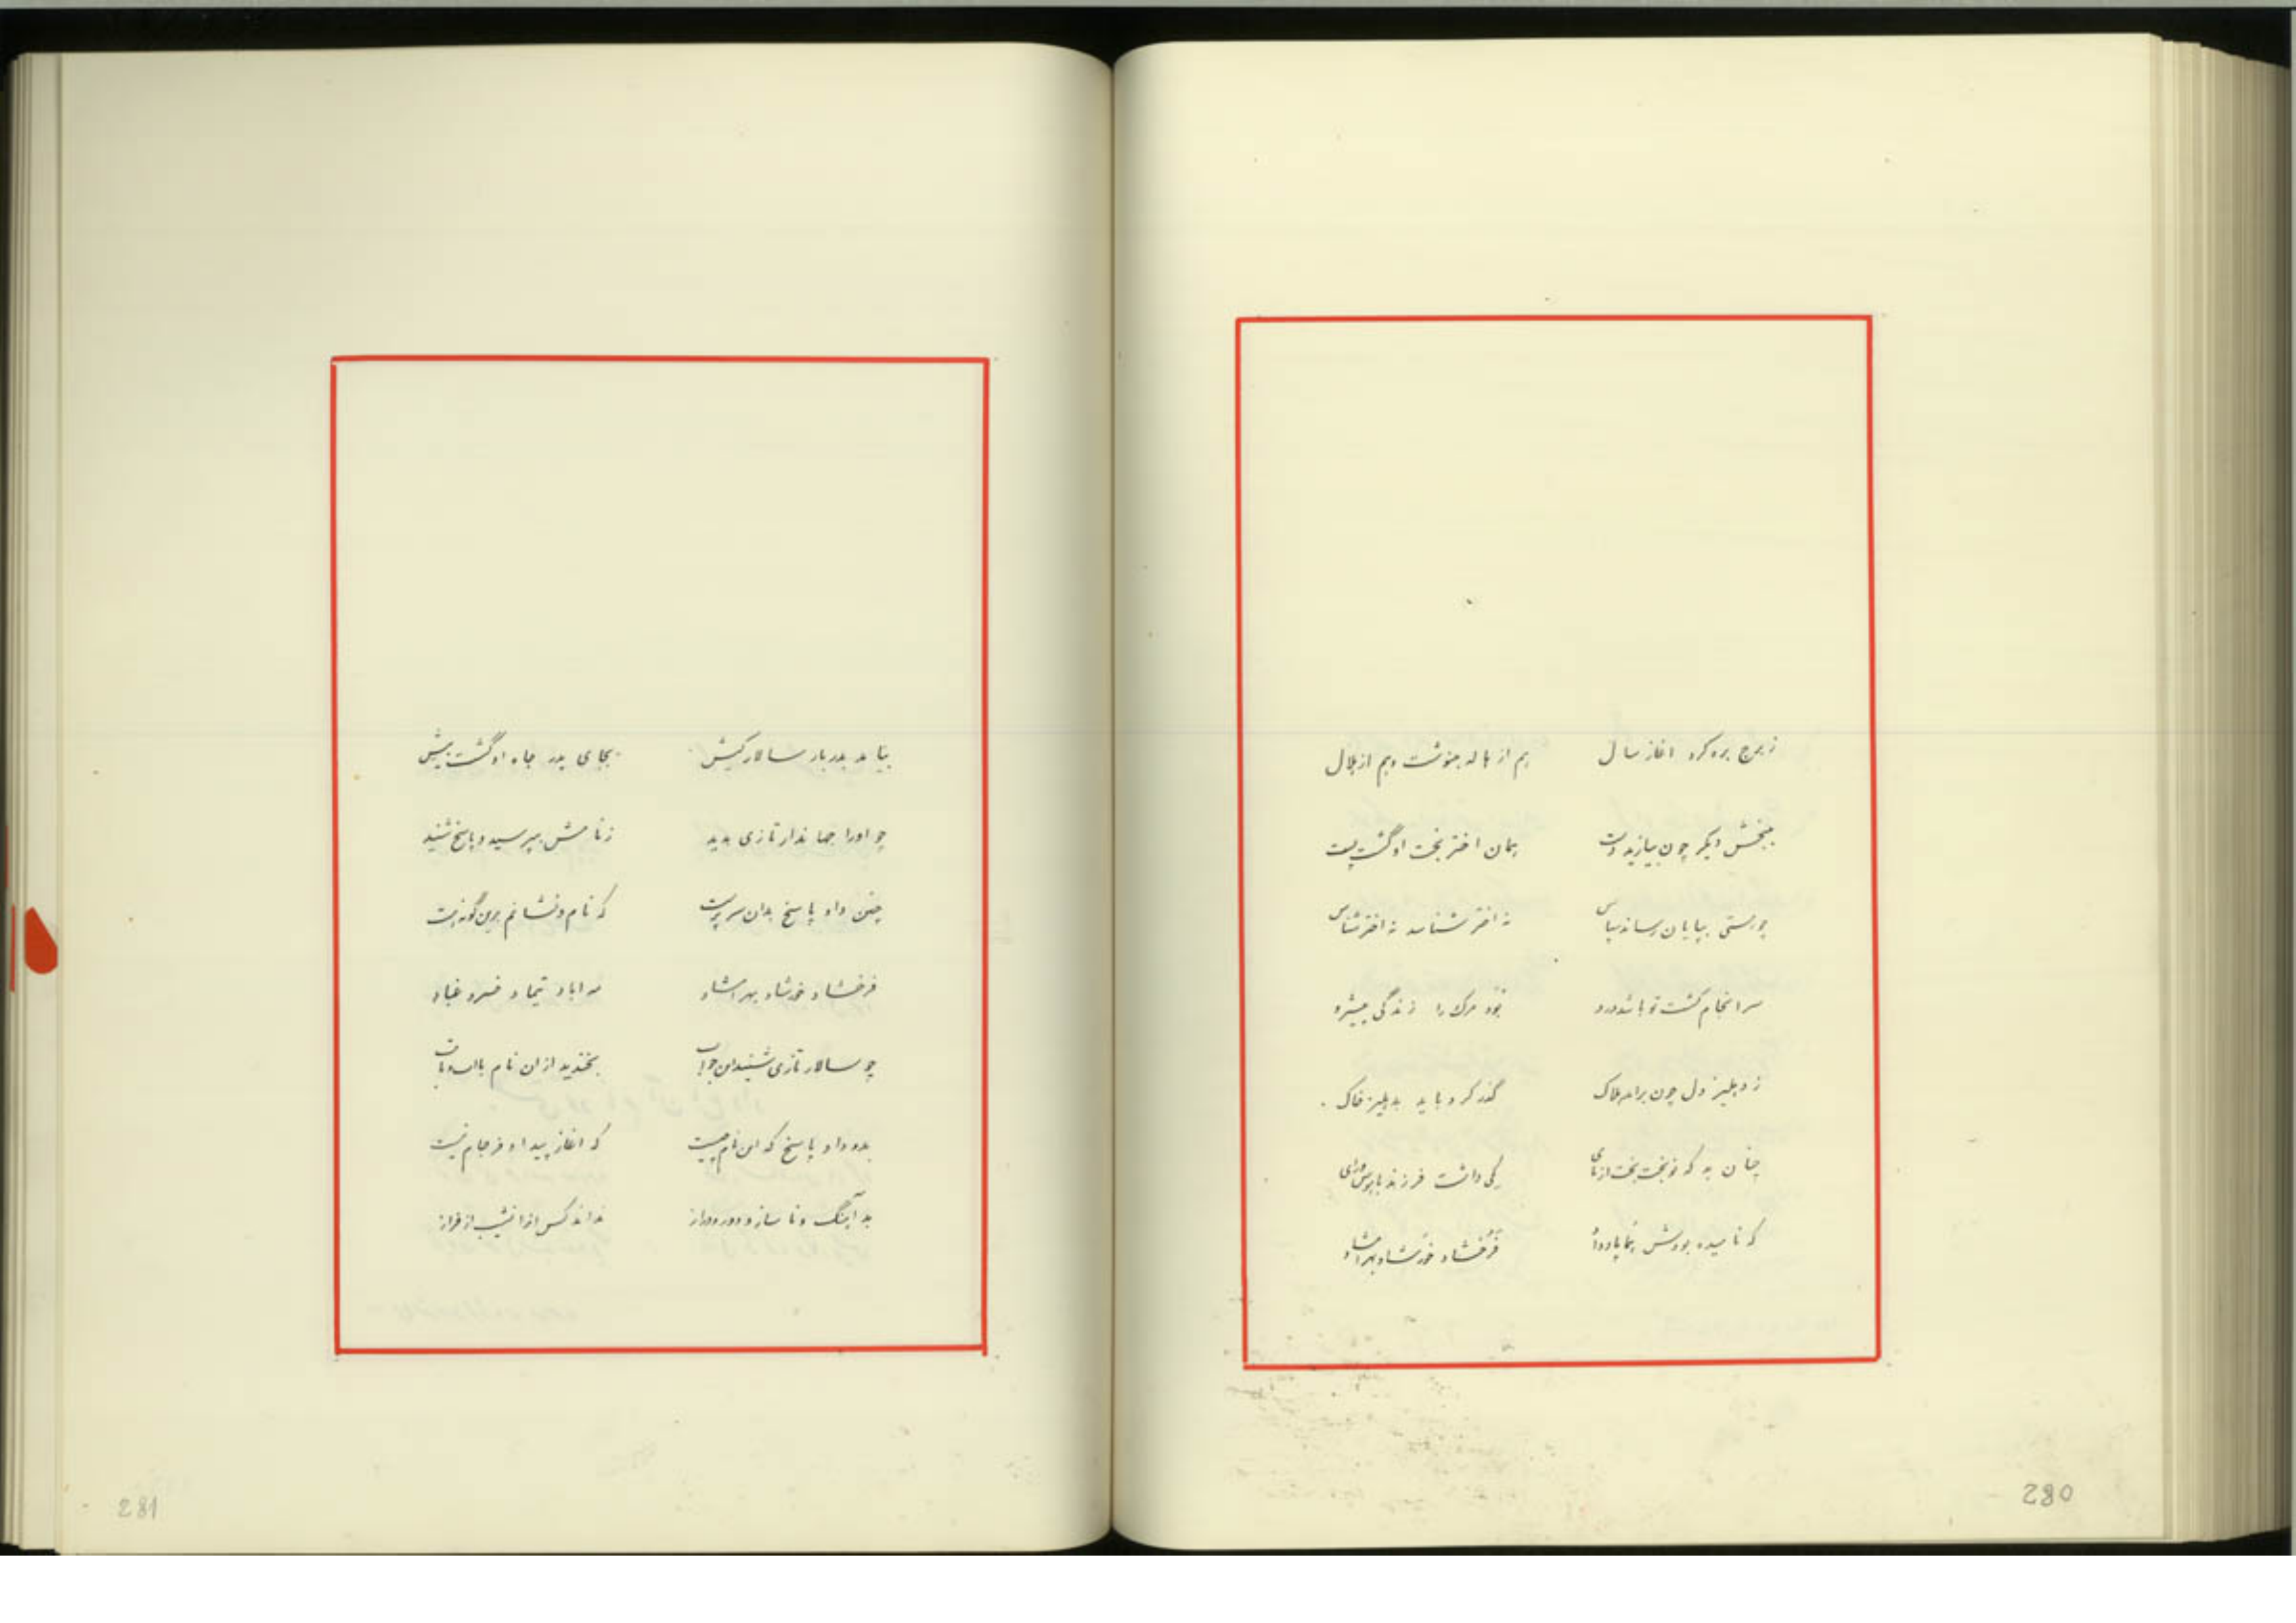 ز برج بره کرد اغاز سال هم از هاله بنوشت و هم از هلال
ببخش دیگر چون بیازید دست همان اختر بخت او گشت پست
چو هستی بپایان رساند سپاس نه اختر شناسد نه اختر شناس
سرانجام کشت تو باشد درو بود مرگ را زندگی پیشرو
ز دهلیز دل چون برامد هلاک گذر کرد باید بدهلیز خاک
چنان به که نوبخت بخت ازمای یکی داشت فرزند با هوش ورای
که نامیده بودش فرخشاد خورشاد بهرامشاد
280
بیامد بدربار سالار کیش بجای پدر جاه او گشت بیش
چو اورا جهاندار تازی بدید ز نامش بپرسید و پاسخ شنید
چنین داد پاسخ بدان سرپرست که نام و نشانم برین گونه است
فرخشاد خورشاد بهرامشاد مه اباد تیماد خسرو غباد
چو سالار تازی شنید این جواب بخندید از ان نام
بدو داد پاسخ که این نام چیست که اغاز پیدا و فرجام نیست
بد آهنگ و نا ساز و دور و دراز نداند کس از نشیب از فراز
281